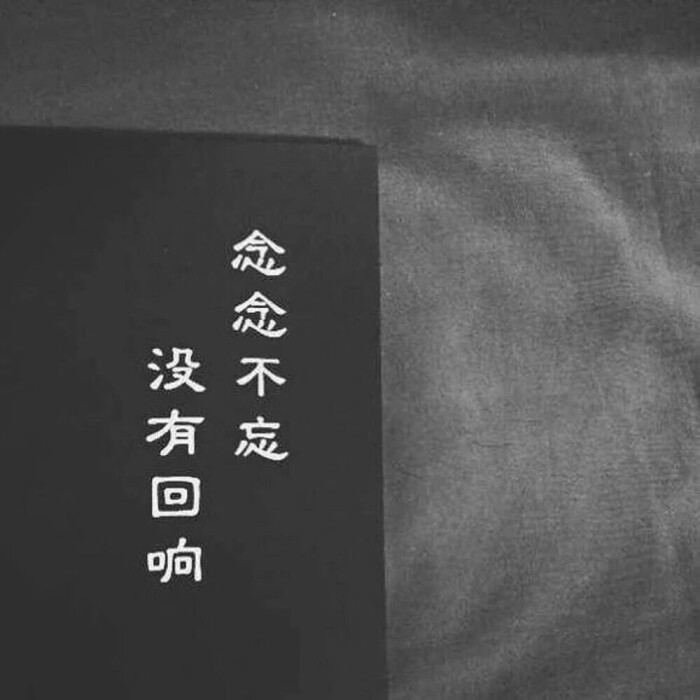 念念不忘
没有回响